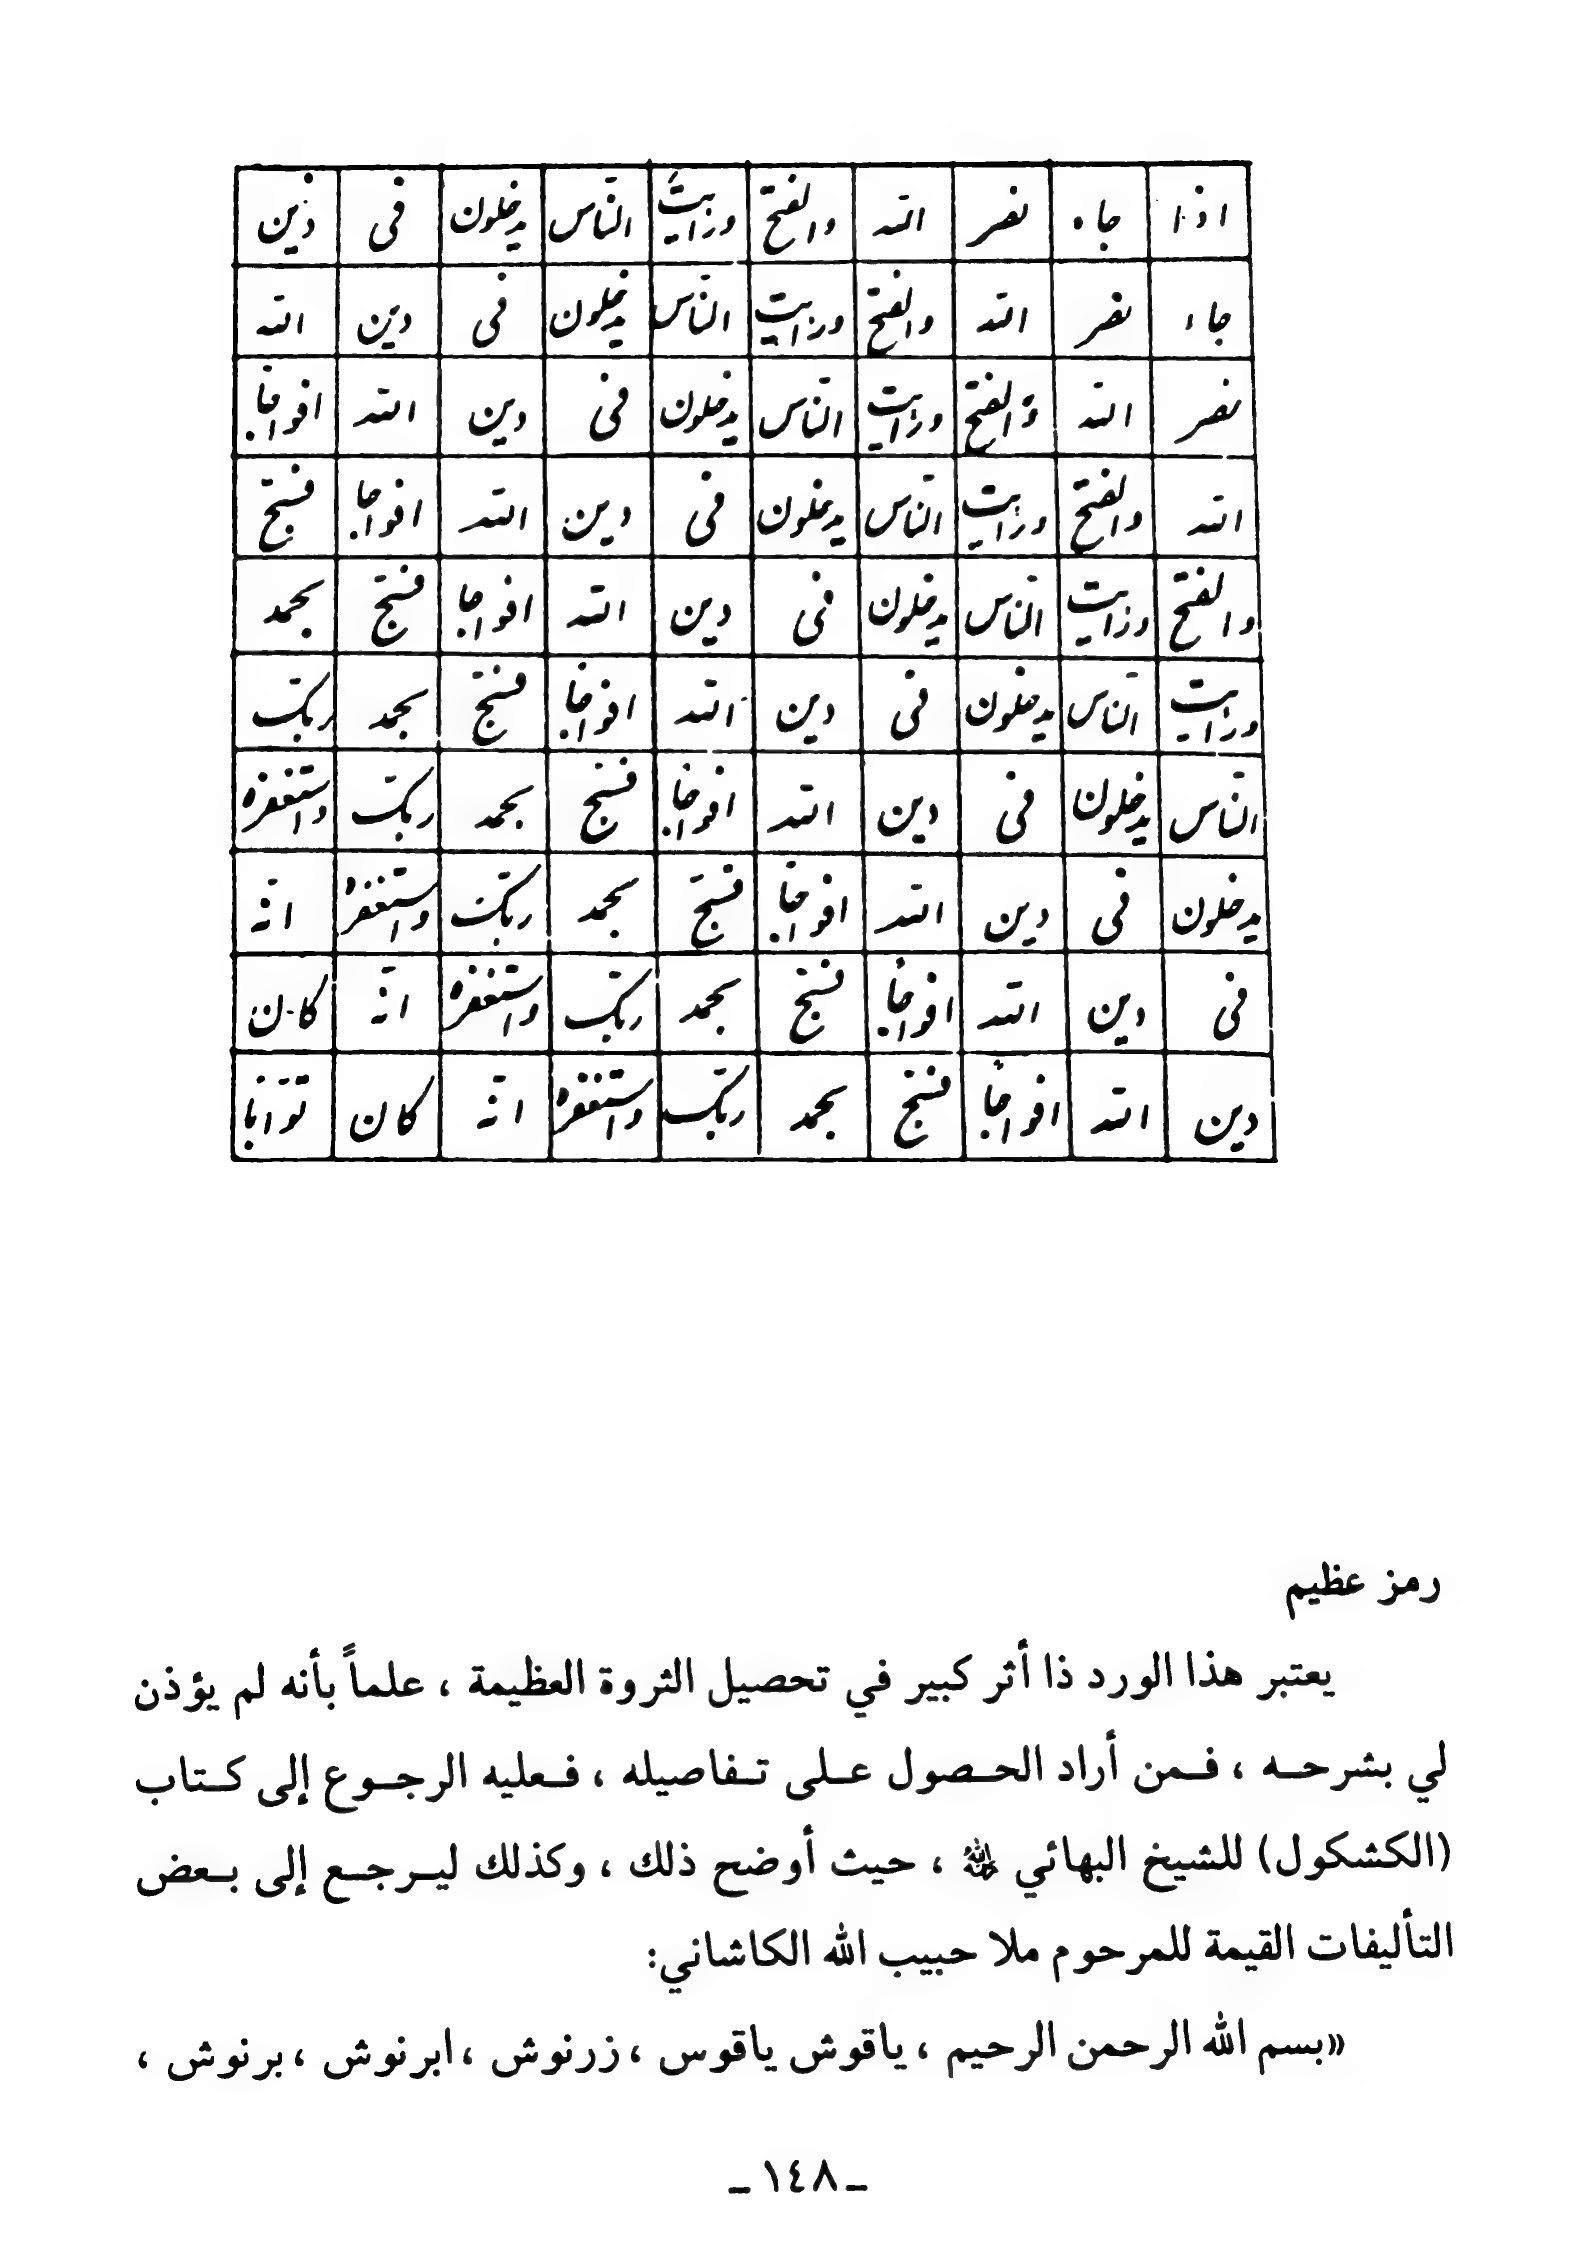 اذا جاء نصر الله والفتح ورايت الناس يدخلون فى دين
جاء نصر الله والفتح ورايت الناس يدخلون فى دين الله
نصر الله والفتح ورايت الناس يدخلون فى دين الله افواجا
الله والفتح ورايت الناس يدخلون فى دين الله افواجا فسبح
والفتح ورايت الناس يدخلون فى دين الله افواجا فسبح بحمد
ورايت الناس يدخلون فى دين الله افواجا فسبح بحمد ربك
الناس يدخلون فى دين الله افواجا فسبح بحمد ربك واستغفره
يدخلون فى دين الله افواجا فسبح بحمد ربك واستغفره انه
فى دين الله افواجا فسبح بحمد ربك واستغفره انه كان
دين الله افواجا فسبح بحمد ربك واستغفره انه كان توابا
رمز عظيم
يعتبر هذا الورد ذا أثر كبير في تحصيل الثروة العظيمة ، علماً بأنه لم يؤذن
لي بشرحـه ، فـمن أراد الحـصول عـلى تـفاصيله ، فـعليه الرجـوع إلى كـتاب
(الكشكول) للشيخ البهائي ﵀ ، حيث أوضح ذلك ، وكذلك ليـرجـع إلى بـعض
التأليفات القيمة للمرحوم ملا حبيب الله الكاشاني:
«بسم الله الرحمن الرحيم ، ياقوش ياقوس ، زرنوش ، ابرنوش ، برنوش ،
ـ ١٤٨ ـ